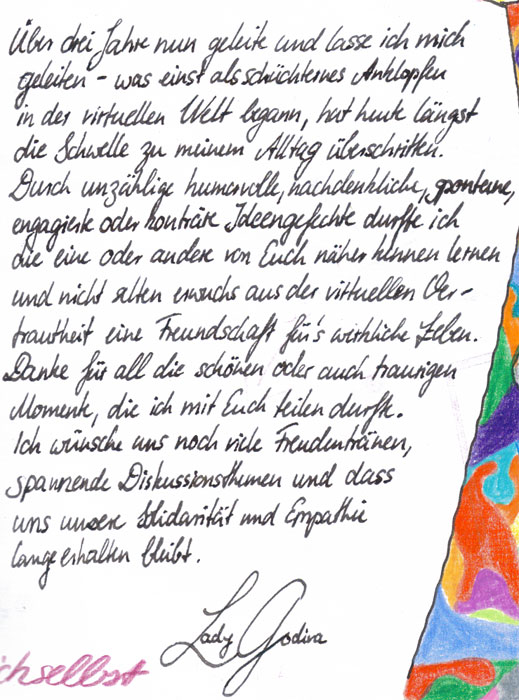 Über drei Jahre nun geleite und lasse ich mich
geleiten - was einst als schüchternes Anklopfen
in der virtuellen Welt begann, hat heute längst
die Schwelle zu meinem Alltag überschritten.
Durch unzählige humorvolle, nachdenkliche, spontane,
engagierte oder konträre Ideengefechte durfte ich
die eine oder andere von Euch näher kennen lernen
und nicht selten erwuchs aus der virtuellen Ver-
trautheit eine Freundschaft für's wirkliche Leben.
Danke für all die schönen oder auch traurigen
Momente, die ich mit Euch teilen durfte.
Ich wünsche uns noch viele Freudentränen,
spannende Diskussionsthemen und dass
uns unsere Solidarität und Empathie
lange erhalten bleibt.
Lady Godiva
ichselbst